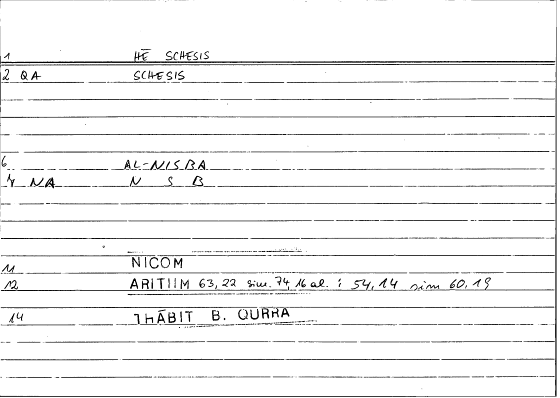 1 HĒ SCHESIS
2 QA SCHESIS
6 AL-NISBA
7 NA N S B
11 NICOM
12 ARITIIM 63,22 sim. 74,16 al. : 54,14 sim 60,19
14 THĀBIT B. QURRA